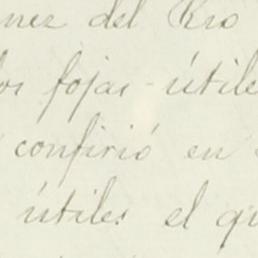 nez del Rio
os fojas - útile
confirió en
útiles el qu